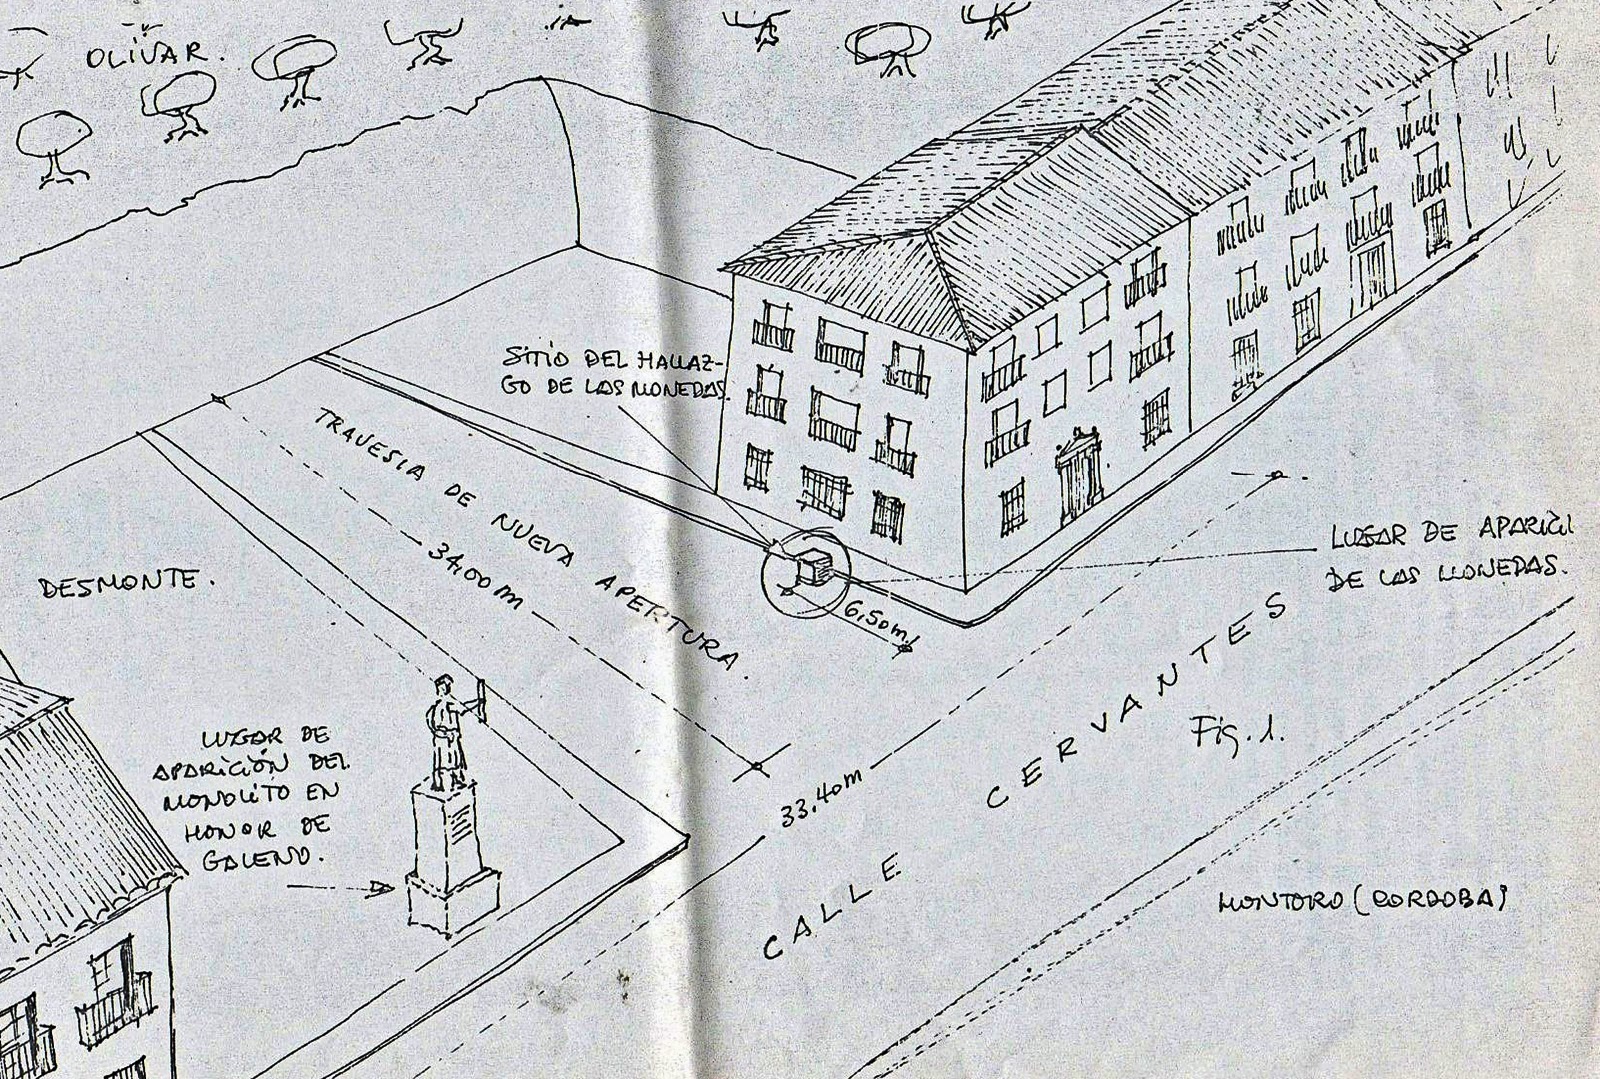 OLIVAR.
SITIO DEL HALLAZ-
GO DE LAS MONEDAS.
TRAVESIA DE NUEVA APERTURA.
34,00 m
DESMONTE.
6,50 m.
LUGAR DE APARICI
DE LAS MONEDAS.
LUGAR DE
APARICIÓN DEL
MONOLITO EN
HONOR DE
GALENO.
33,40 m
CALLE CERVANTES
Fig. 1.
MONTORO (CORDOBA)